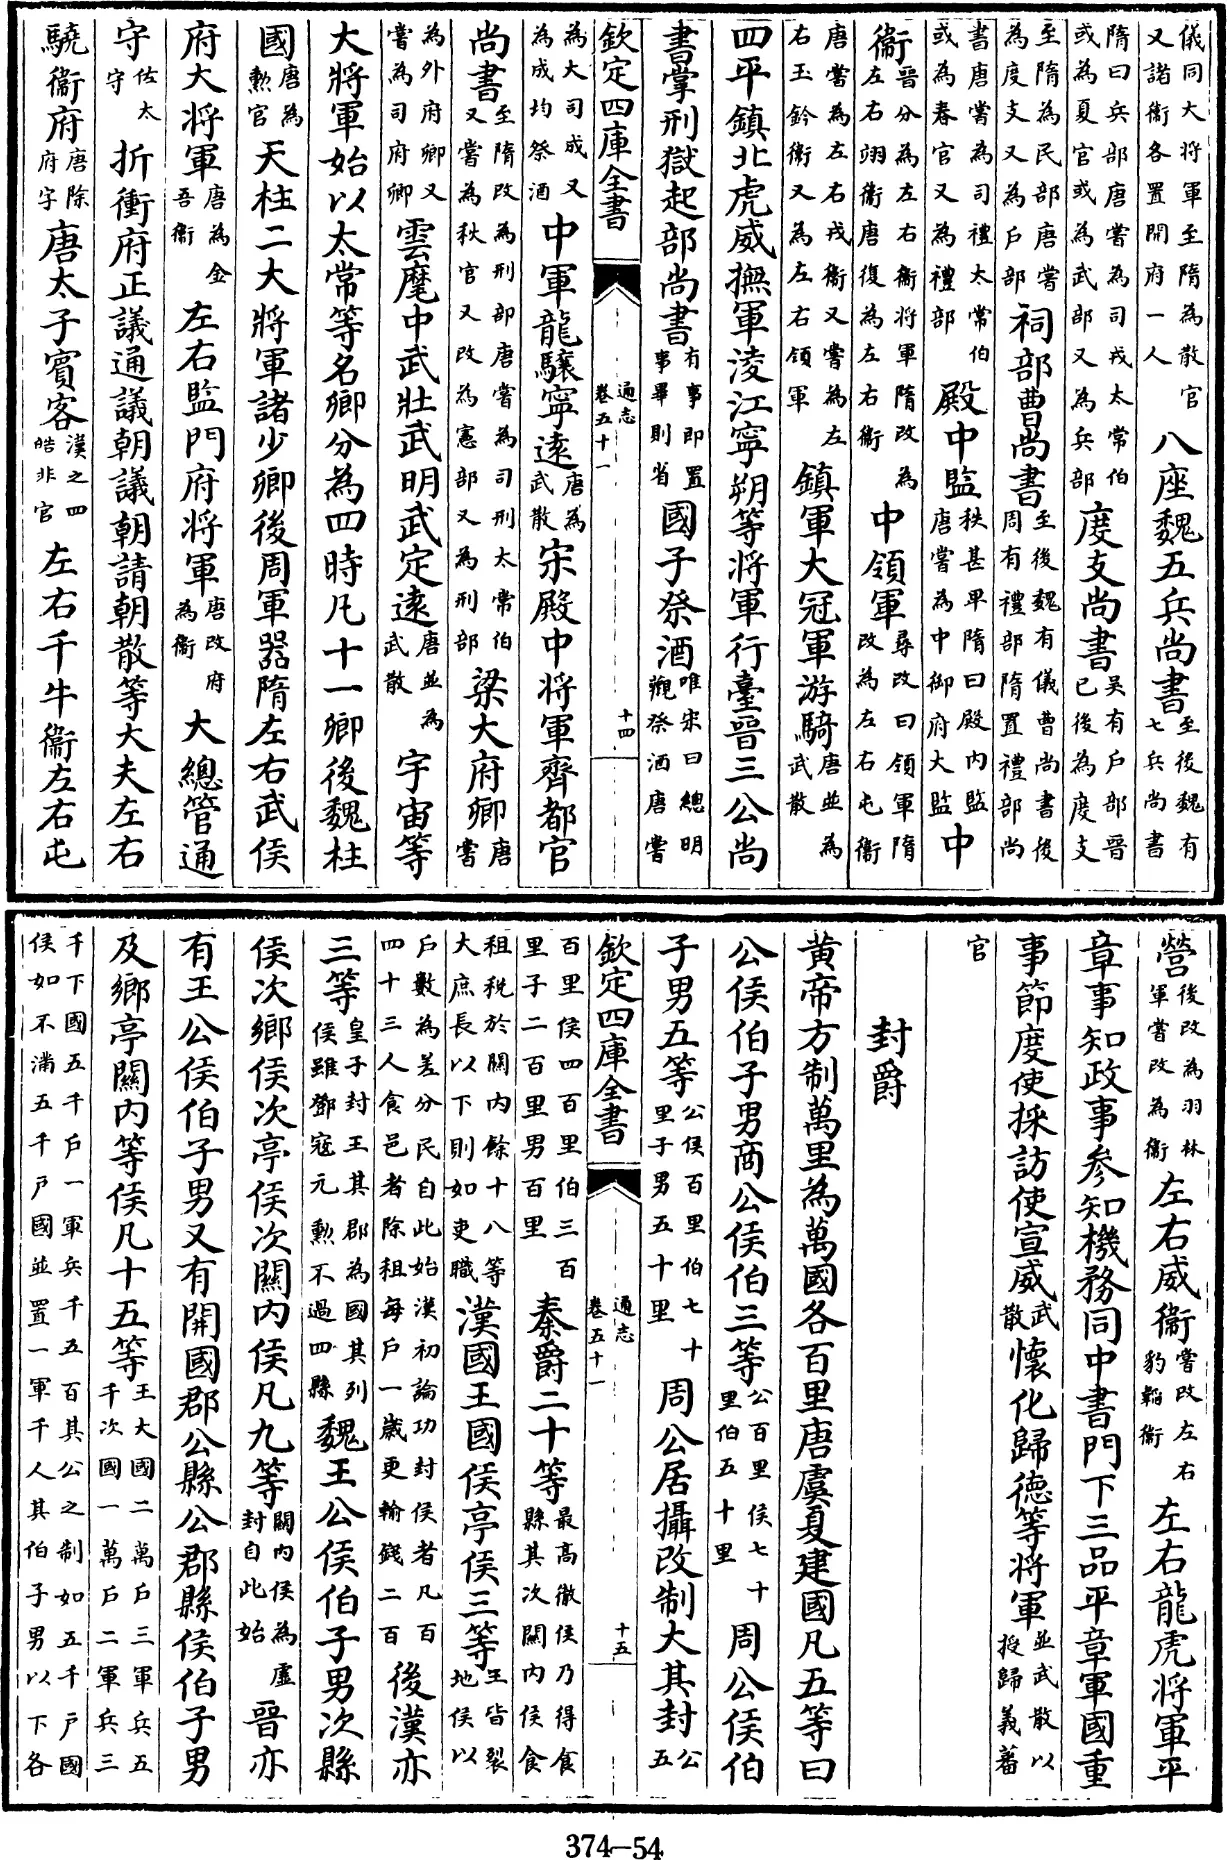 儀同大將軍至隋為散官又諸衛各置開府一人 八座魏五兵尚書至後魏有七兵尚書
隋曰兵部唐嘗為司戎太常伯或為夏官或為武部又為兵部 度支尚書吳有戶部晉已後為度支
至隋為民部唐嘗為度支又為戶部 祠部曹尚書至後魏有儀曹尚書後周有禮部隋置禮部尚
書唐嘗為司禮太常伯或為春官又為禮部 殿中監秩甚卑隋曰殿內監唐嘗為中御府大監 中
衛晉分為左右衛將軍隋改為左右翊衛唐復為左右衛 中領軍尋改曰領軍隋改為左右屯衛
唐嘗為左右戎衛又嘗為左右玉鈐衛又為左右領軍 鎮軍大冠軍游騎唐並為武散
四平鎮北虎威撫軍淩江寧朔等將軍行臺晉三公尚
書掌刑獄起部尚書有事即置事畢則省 國子祭酒唯宋曰總明觀祭酒唐嘗
欽定四庫全書 通志卷五十一 十四
為大司成又為成均祭酒 中軍龍驤寧遠唐為武散 宋殿中將軍齊都官
尚書至隋改為刑部唐嘗為司刑太常伯又嘗為秋官又改為憲部又為刑部 梁大府卿唐嘗
為外府卿又嘗為司府卿 雲麾中武壯武明武定遠唐並為武散 宇宙等
大將軍始以太常等名卿分為四時凡十一卿後魏柱
國唐為勲官 天柱二大將軍諸少卿後周軍器隋左右武侯
府大將軍唐為金吾衛 左右監門府將軍唐改府為衛 大總管通
守佐太守 折衝府正議通議朝議朝請朝散等大夫左右
驍衛府唐除府字 唐太子賓客漢之四皓非官 左右千牛衛左右屯
營後改為羽林軍嘗改為衛 左右威衛嘗改左右豹韜衛 左右龍虎將軍平
章事知政事参知機務同中書門下三品平章軍國重
事節度使採訪使宣威武散 懷化歸德等將軍並武散以授歸義蕃
官
封爵
黄帝方制萬里為萬國各百里唐虞夏建國凡五等曰
公侯伯子男商公侯伯三等公百里侯七十里伯五十里 周公侯伯
子男五等公侯百里伯七十里子男五十里 周公居攝改制大其封公五
欽定四庫全書 通志卷五十一 十五
百里侯四百里伯三百里子二百里男百里 秦爵二十等最高徹侯乃得食縣其次關内侯食
租稅於關内餘十八等大庶長以下則如吏職 漢國王國侯亭侯三等王皆裂地侯以
戶數為差分民自此始漢初論功封侯者凡百四十三人食邑者除租每戶一嵗更輸錢二百 後漢亦
三等皇子封王其郡為國其列侯雖鄧冦元勲不過四縣 魏王公侯伯子男次縣
侯次鄉侯次亭侯次關内侯凡九等關内侯為虛封自此始 晉亦
有王公侯伯子男又有開國郡公縣公郡縣侯伯子男
及鄉亭關内等侯凡十五等王大國二萬戶三軍兵五千次國一萬戶二軍兵三
千下國五千戶一軍兵千五百其公之制如五千戶國侯如不滿五千戶國並置一軍千人其伯子男以下各
374—54